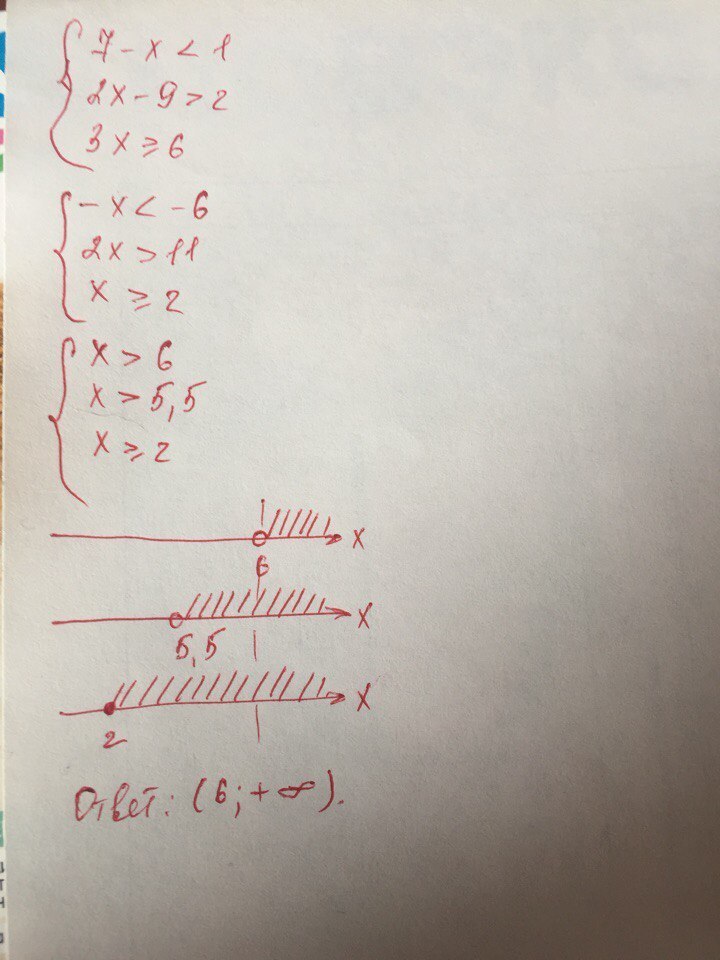 7 - x < 1
2x - 9 > 2
3x ≥ 6
-x < -6
2x > 11
x ≥ 2
x > 6
x > 5,5
x ≥ 2
x
6
x
5,5
x
2
Ответ: (6; +∞).